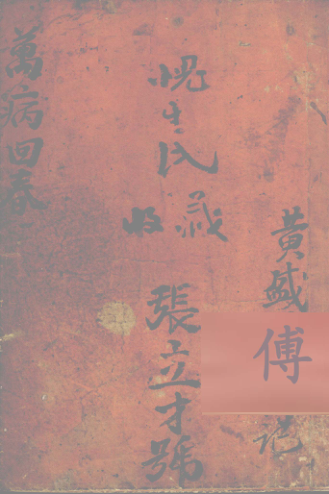 黃盛傅記
愰生氏
收藏
張立才號
萬病回春